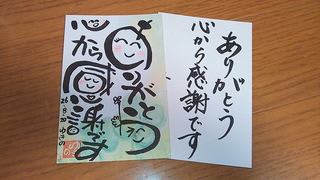 ありがとう
心から感謝です
ありがとう
心から感謝です